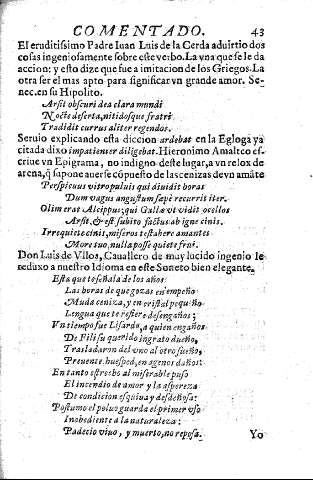 COMENTADO. 43
El eruditissimo Padre Iuan Luis de la Cerda aduirtio dos
cosas ingeniosamente sobre este verbo. La vna que se le da
accion: y esto dize que fue a imitacion de los Griegos. La
otra ser el mas apto para significar vn grande amor. Se-
nec. en su Hipolito.
Arsit obscuri dea clara mundi
Nocte deserta, nitidosque fratri
Tradidit currus aliter regendos.
Seruio explicando esta diccion ardebat en la Egloga ya
citada dixo impatienter diligebat. Hieronimo Amalteo es-
criue vn Epigrama, no indigno deste lugar, a vn relox de
arena, q̃ supone auerse cõpuesto de las cenizas de vn amãte
Perspicuus vitro puluis qui diuidit horas
Dum vagus angustum sæpè recurrit iter.
Olim erat Alcippus; qui Gallæ vt vidit ocellos
Arsit, & est subito factus ab igne cinis.
Irrequiete cinis, miseros testabere amantes
More tuo, nulla posse quiete frui.
Don Luis de Vlloa, Cauallero de muy lucido ingenio le
reduxo a nuestro Idioma en este Soneto bien elegante.
Esta que te señala de los años
Las horas de que gozas en empeño
Muda ceniza, y en cristal pequeño
Lengua que te refiere desengaños;
Vn tiempo fue Lisardo, a quien engaños
De Filis u querido ingrato dueño,
Trasladaron del vno al otro sueño,
Preuente huesped, en agenos daños:
En tanto estrecho al miserable puso
El incendio de amor y la aspereza
De condicion esquiua y desdeñosa:
Postumo el poluo guarda el primer vso
Inobediente a la naturaleza;
Padecio viuo, y muerto, no reposa.
Yo